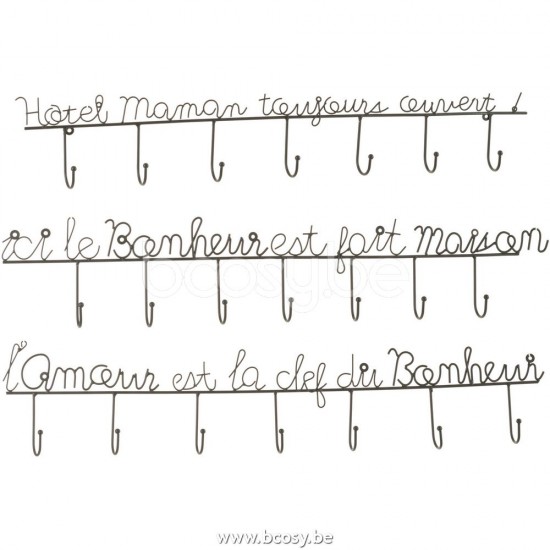 Hotel Maman toujours ouvert !
ici le Bonheur est fait maison
bcosy.be
l'amour est la clef du Bonheur
www.bcosy.be